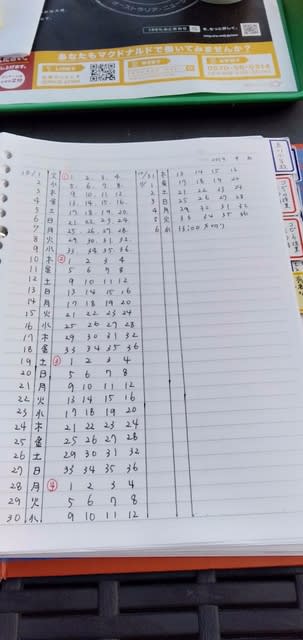 オーストラリア・ニュー
あなたもマクドナルドで働いてみませんか?
10/1 火 ① 1 2 3 4
2 水 5 6 7 8
3 木 9 10 11 12
4 金 13 14 15 16
5 土 17 18 19 20
6 日 21 22 23 24
7 月 25 26 27 28
8 火 29 30 31 32
9 水 33 34 35 36
10 木 ② 1 2 3 4
11 金 5 6 7 8
12 土 9 10 11 12
13 日 13 14 15 16
14 月 17 18 19 20
15 火 21 22 23 24
16 水 25 26 27 28
17 木 29 30 31 32
18 金 33 34 35 36
19 土 ③ 1 2 3 4
20 日 5 6 7 8
21 月 9 10 11 12
22 火 13 14 15 16
23 水 17 18 19 20
24 木 21 22 23 24
25 金 25 26 27 28
26 土 29 30 31 32
27 日 33 34 35 36
28 月 ④ 1 2 3 4
29 火 5 6 7 8
30 水 9 10 11 12
2019
10/31 木 13 14 15 16
1 金 17 18 19 20
2 土 21 22 23 24
3 日 25 26 27 28
4 月 29 30 31 32
5 火 33 34 35 36
6 水 13:00